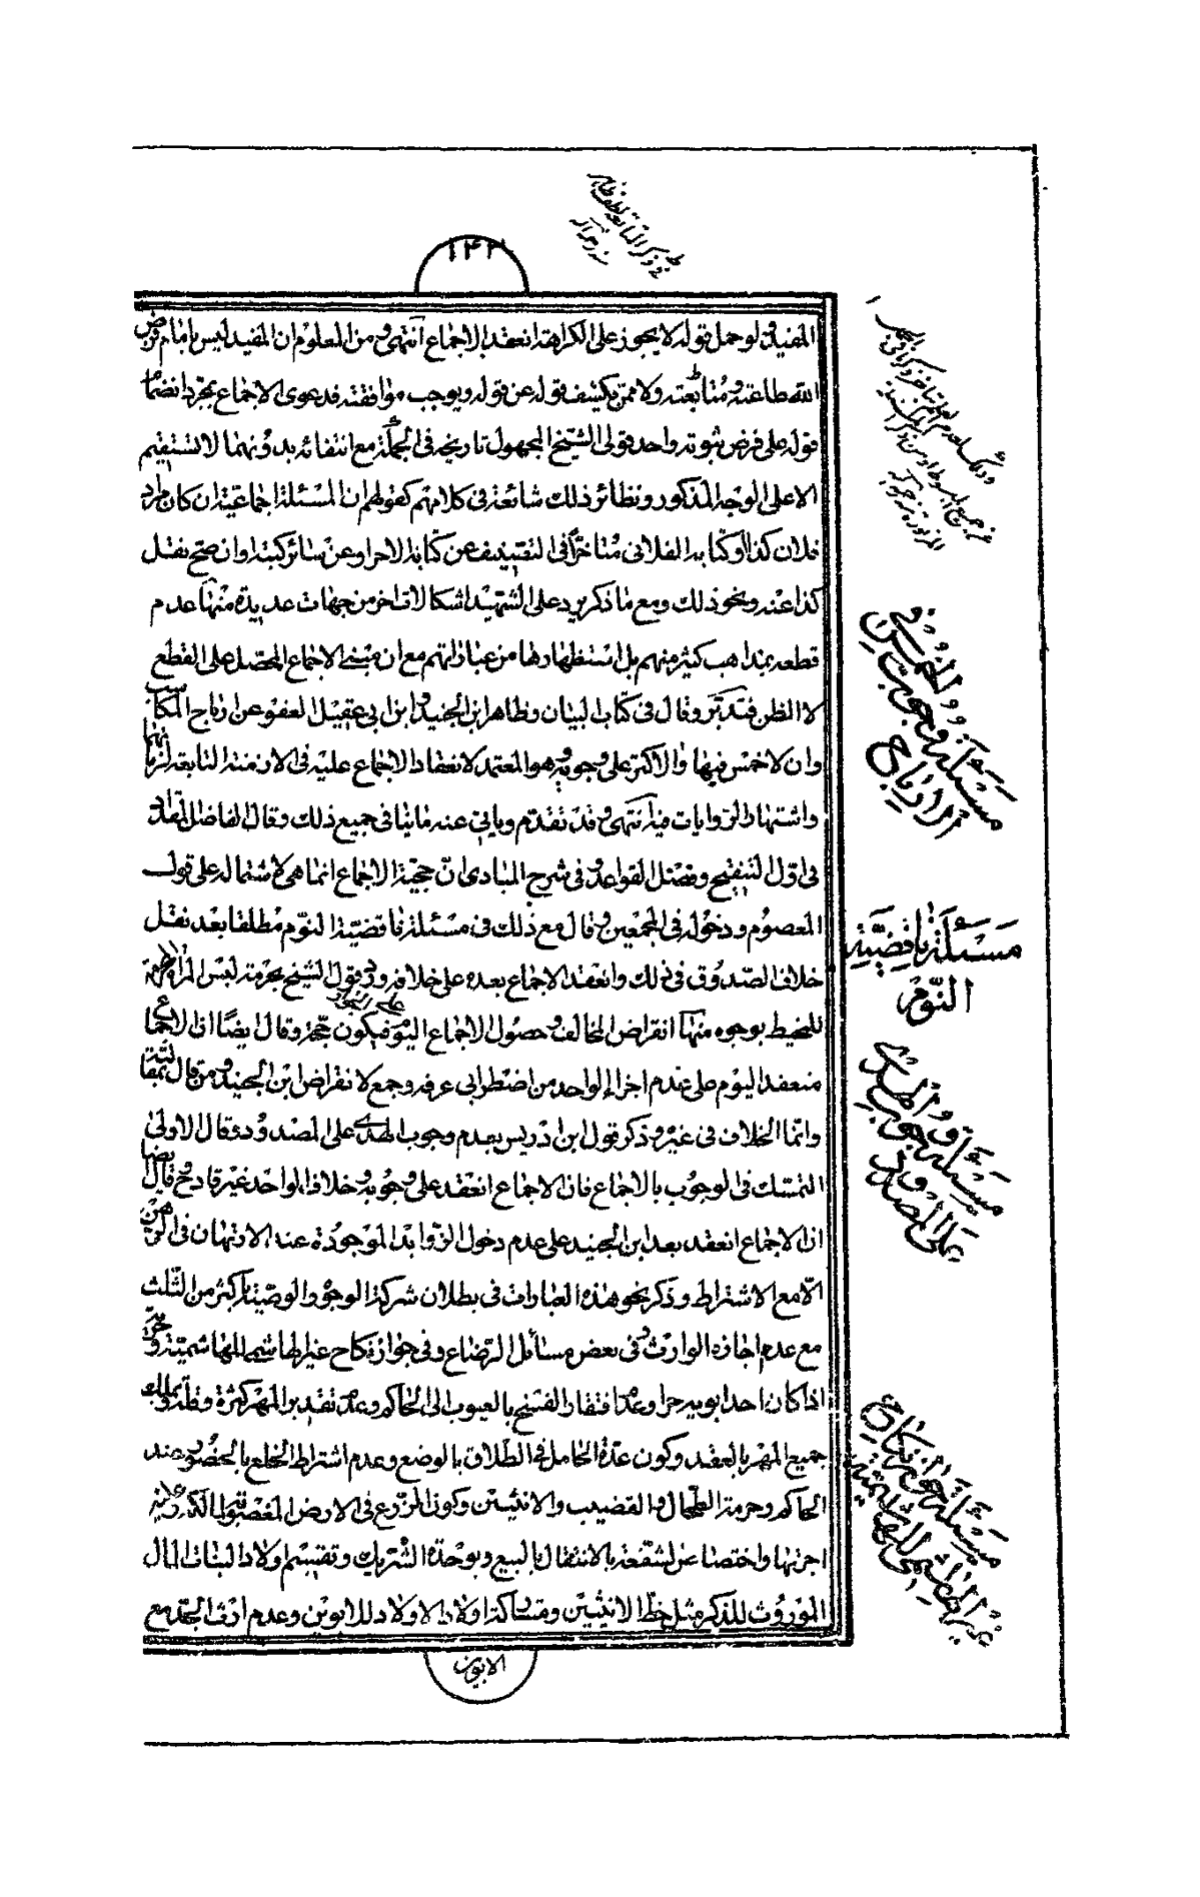 ١٤٢
المفيد ولو حمل قوله لا يجوز على الكراهة انعقد الاجماع انتهى ومن المعلوم ان المفيد ليس بامام فرض
الله طاعته ومتابعته ولا ممن يكشف قوله عن قوله ويوجب موافقته فدعوى الاجماع بمجرد انضمام
قوله على فرض ثبوته واحد قولى الشيخ المجهول تاريخه فى الجملة مع انتفائه بدونهما لا تستقيم
الا على الوجه المذكور ونظائر ذلك شائعة فى كلامهم كقولهم ان المسئلة اجماعية ان كان مراد
فلان كذا او كتابه الفلانى متاخرا فى التصنيف عن كتابه الاخر او عن سائر كتبه او ان صح نقل
كذا عنه ونحو ذلك ومع ما ذكر يرد على الشهيد اشكالات اخر من جهات عديدة منها عدم
قطعه بمذاهب كثير منهم بل استظهارها من عباراتهم مع ان مبنى الاجماع المحصل على القطع
لا الظن فتدبر وقال فى كتاب البيان وظاهر ابن الجنيد وابن ابى عقيل العفو عن ارباح المكاسب
وان لا خمس فيها والاكثر على وجوبه وهو المعتمد لانعقاد الاجماع عليه فى الازمنة التابعة لزمانهما
واشتهار الروايات فيه انتهى وقد تقدم وياتى عنه ما ينافى جميع ذلك وقال الفاضل المقداد
فى اول التنقيح ونضد القواعد وفى شرح المبادى ان حجية الاجماع انما هى لاشتماله على قول
المعصوم ودخوله فى المجمعين وقال مع ذلك فى مسئلة ناقضية النوم مطلقا بعد نقل
خلاف الصدوق فى ذلك وانعقد الاجماع بعده على خلافه ورد قول الشيخ بحرمة لبس المراة المحرمة
للمخيط بوجوه منها انقراض المخالف وحصول الاجماع اليوم فيكون حجة وقال ايضا ان الاجماع
منعقد اليوم على عدم اجزاء الواحد من اضطرابى عرفة وجمع لانقراض ابن الجنيد ومن قال بمقالته
وانما الخلاف فى غيره وذكر قول ابن ادريس بعدم وجوب الهدى على المصدود وقال الاولى
التمسك فى الوجوب بالاجماع فان الاجماع انعقد على وجوبه وخلاف الواحد غير قادح وقال ايضا
ان الاجماع انعقد بعد ابن الجنيد على عدم دخول الزوائد الموجودة عند الارتهان فى الرهن
الا مع الاشتراط وذكر نحو هذه العبارات فى بطلان شركة الوجوه والوصية باكثر من الثلث
مع عدم اجازة الوارث وفى بعض مسائل الرضاع وفى جواز نكاح غير الهاشمى للهاشمية و
اذا كان احد ابويه حرا وعدم افتقار الفسخ بالعيوب الى الحاكم وعدم تقدير المهر كثرة وقلة وتملك
جميع المهر بالعقد وكون عدة الحامل فى الطلاق بالوضع وعدم اشتراط الخلع بالحضور عند
الحاكم وحرمة الطحال والقضيب والانثيين وكون الزرع فى الارض المغصوبة لمالك
اجرتها واختصاص الشفعة بالانتقال بالبيع وبوحدة الشريك وتقسيم اولاد البنات المال
الموروث للذكر مثل حظ الانثيين ومشاركة اولاد الاولاد للابوين وعدم ارث الجد مع
الابوين
مسئلة وجوب الخمس فى الارباح
مسئلة ناقضية
النوم
مسئلة وجوب الهدى
على المصدود
مسئلة جواز نكاح
غير الهاشمى للهاشمية